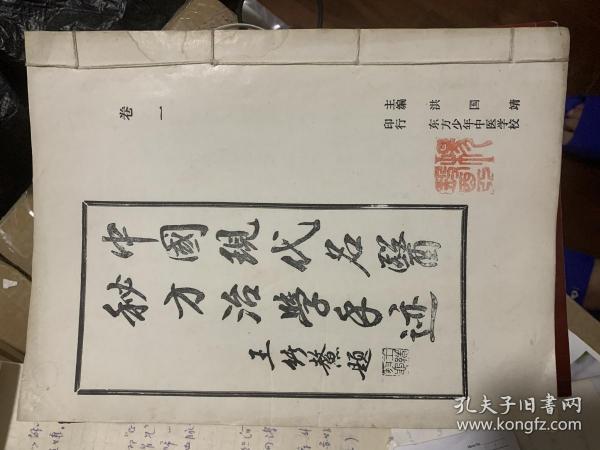 卷一
主编 洪国靖
印行 东方少年中医学校
中國現代名醫
秘方治學手迹
王竹題
孔夫子旧书网
www.kongfz.com